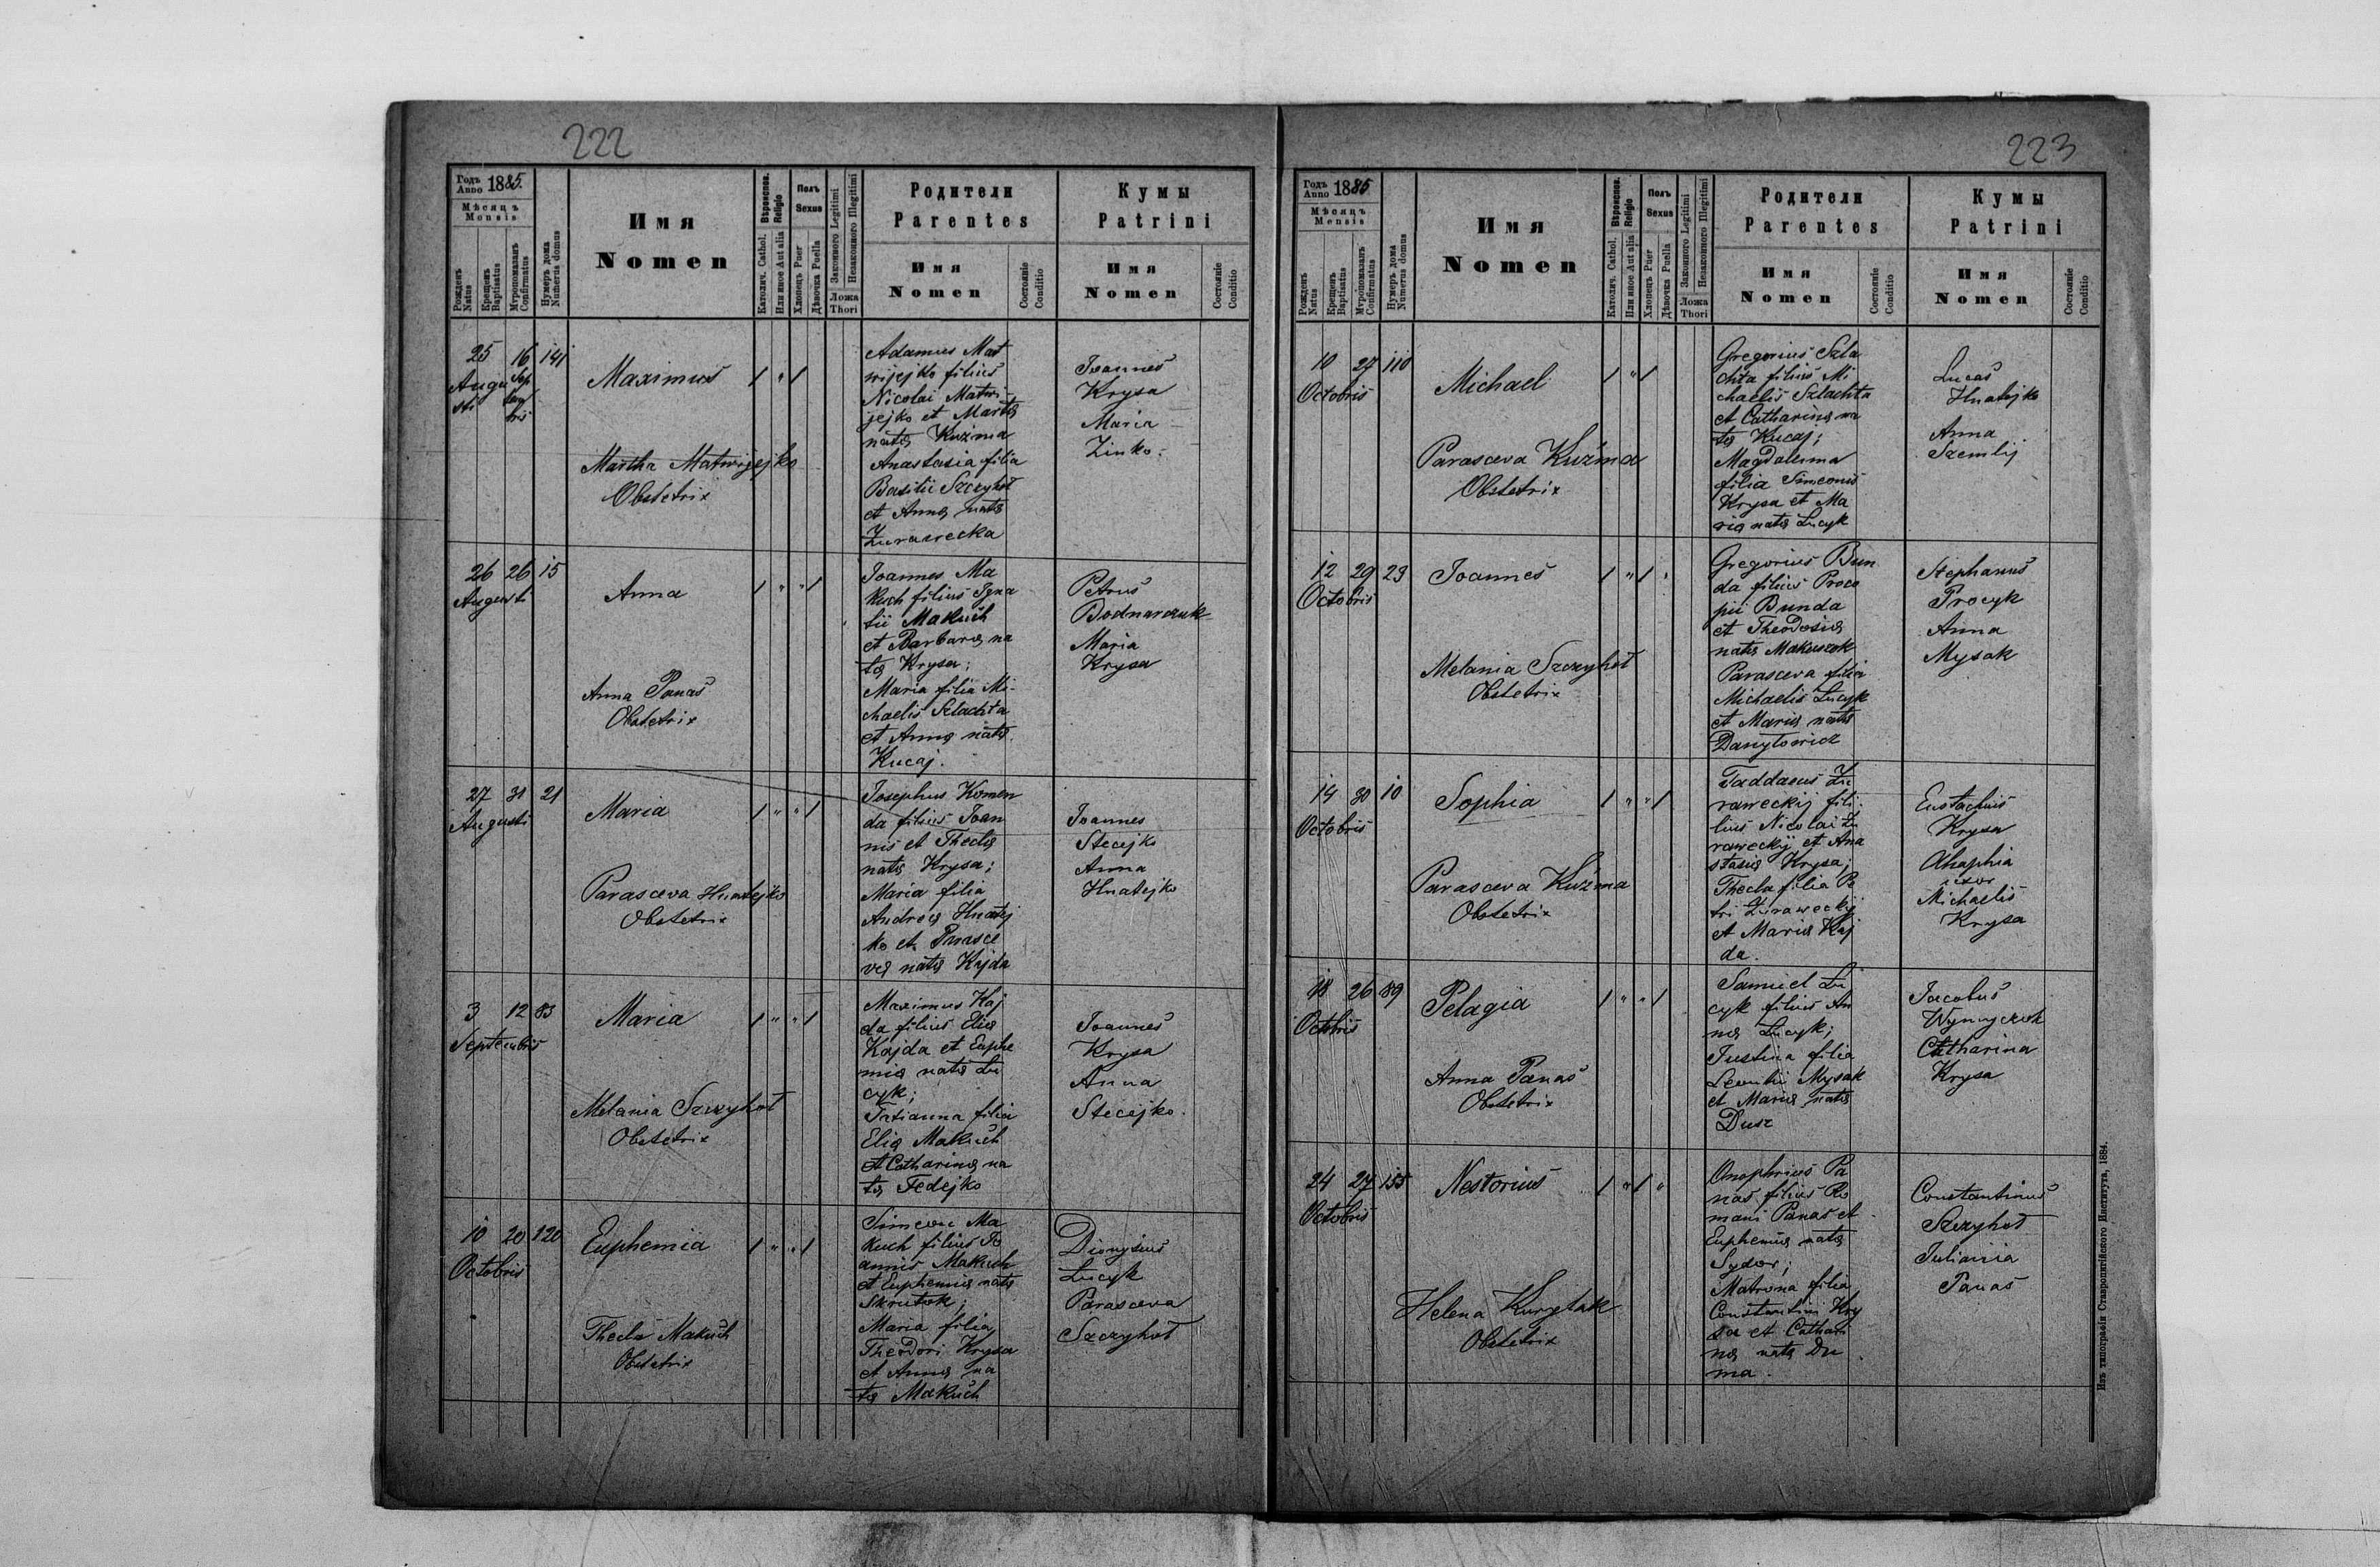 222
Годъ
Anno 1885.
Мѣсяцъ
Mensis
Рожденъ
Natus
Крещенъ
Baptisatus
Мѵропомазанъ
Confirmatus
Нумеръ дома
Numerus domus
Имя
Nomen
Вѣроиспов.
Religio
Католич. Cathol.
Или иное Aut alia
Полъ
Sexus
Хлопецъ Puer
Дѣвочка Puella
Законного Legitimi
Незаконного Illegitimi
Ложа
Thori
Родители
Parentes
Имя
Nomen
Состояніе
Conditio
Кумы
Patrini
Имя
Nomen
Состояніе
Conditio
25 16 141
Augu Sep
sti tem
bris
Maximus
Martha Matwijejko
Obstetrix
Adamus Mat
wijejko filius
Nicolai Matwi
jejko et Martæ
natæ Kuźma
Anastasia filia
Basilii Szczyhoł
et Annæ natæ
Żurawecka
Joannes
Krysa
Maria
Zinko.
26 26 15
Augusti
Anna
Anna Panas
Obstetrix
Joannes Ma
kuch filius Igna
tii Makuch
et Barbaræ na
tæ Krysa;
Maria filia Mi-
chaelis Szlachta
et Annæ natæ
Kucaj.
Petrus
Bodnarczuk
Maria
Krysa
27 31 21
Augusti
Maria
Parasceva Hnatejko
Obstetrix
Josephus Komen
da filius Joan
nis et Theclæ
natæ Krysa;
Maria filia
Andreæ Hnatej
ko et Parasce
væ natæ Kajda
Joannes
Stecejko
Anna
Hnatejko
3 12 83
Septembris
Maria
Melania Szczyhoł
Obstetrix
Maximus Kaj
da filius Eliæ
Kajda et Euphe
miæ natæ Lu
cyk;
Tatianna filia
Eliæ Makuch
et Catharinæ na
tæ Fedejko
Joannes
Krysa
Anna
Stecejko.
10 20 120
Octobris
Euphemia
Thecla Makuch
Obstetrix
Simeon Ma
kuch filius Jo
annis Makuch
et Euphemiæ natæ
Skrutok;
Maria filia
Theodori Krysa
et Annæ na
tæ Makuch
Dionysius
Lucyk
Parasceva
Szczyhoł
223
Годъ
Anno 1885
Мѣсяцъ
Mensis
Рожденъ
Natus
Крещенъ
Baptisatus
Мѵропомазанъ
Confirmatus
Нумеръ дома
Numerus domus
Имя
Nomen
Вѣроиспов.
Religio
Католич. Cathol.
Или иное Aut alia
Полъ
Sexus
Хлопецъ Puer
Дѣвочка Puella
Законного Legitimi
Незаконного Illegitimi
Ложа
Thori
Родители
Parentes
Имя
Nomen
Состояніе
Conditio
Кумы
Patrini
Имя
Nomen
Состояніе
Conditio
10 27 110
Octobris
Michael
Parasceva Kuźma
Obstetrix
Gregorius Szla
chta filius Mi
chaelis Szlachta
et Catharinæ na
tæ Kucaj;
Magdalenna
filia Simeonis
Krysa et Ma
riæ natæ Lucyk
Lucas
Hnatejko
Anna
Szemlij
12 29 23
Octobris
Joannes
Melania Szczyhoł
Obstetrix
Gregorius Bun
da filius Proco
pii Bunda
et Theodosiæ
natæ Makuszok
Parasceva filia
Michaelis Lucyk
et Mariæ natæ
Danyłowicz
Stephanus
Procyk
Anna
Mysak
14 30 10
Octobris
Sophia
Parasceva Kuźma
Obstetrix
Taddaeus Żu
raweckij fili-
lius Nicolai Żu
raweckij et Ana
stasiæ Krysa;
Thecla filia Pe
tri Żuraweckij
et Mariæ Kaj
da.
Eustachius
Krysa
Ahaphia
uxor
Michaelis
Krysa
18 26 89
Octobris
Pelagia
Anna Panas
Obstetrix
Samuel Lu
cyk filius An
næ Lucyk;
Justina filia
Leontii Mysak
et Mariæ natæ
Dusz
Jacobus
Catharina
Krysa
24 27 155
Octobris
Nestorius
Helena Kurylak
Obstetrix
Onophrius Pa
nas filius Ro
mani Panas et
Euphemiæ natæ
Sydor;
Matrona filia
Constantini Kry
sa et Cathari
næ natæ Du
ma.
Constantinus
Szczyhoł
Julianna
Panas
Изъ типографіи Ставропигійского Института, 1884.